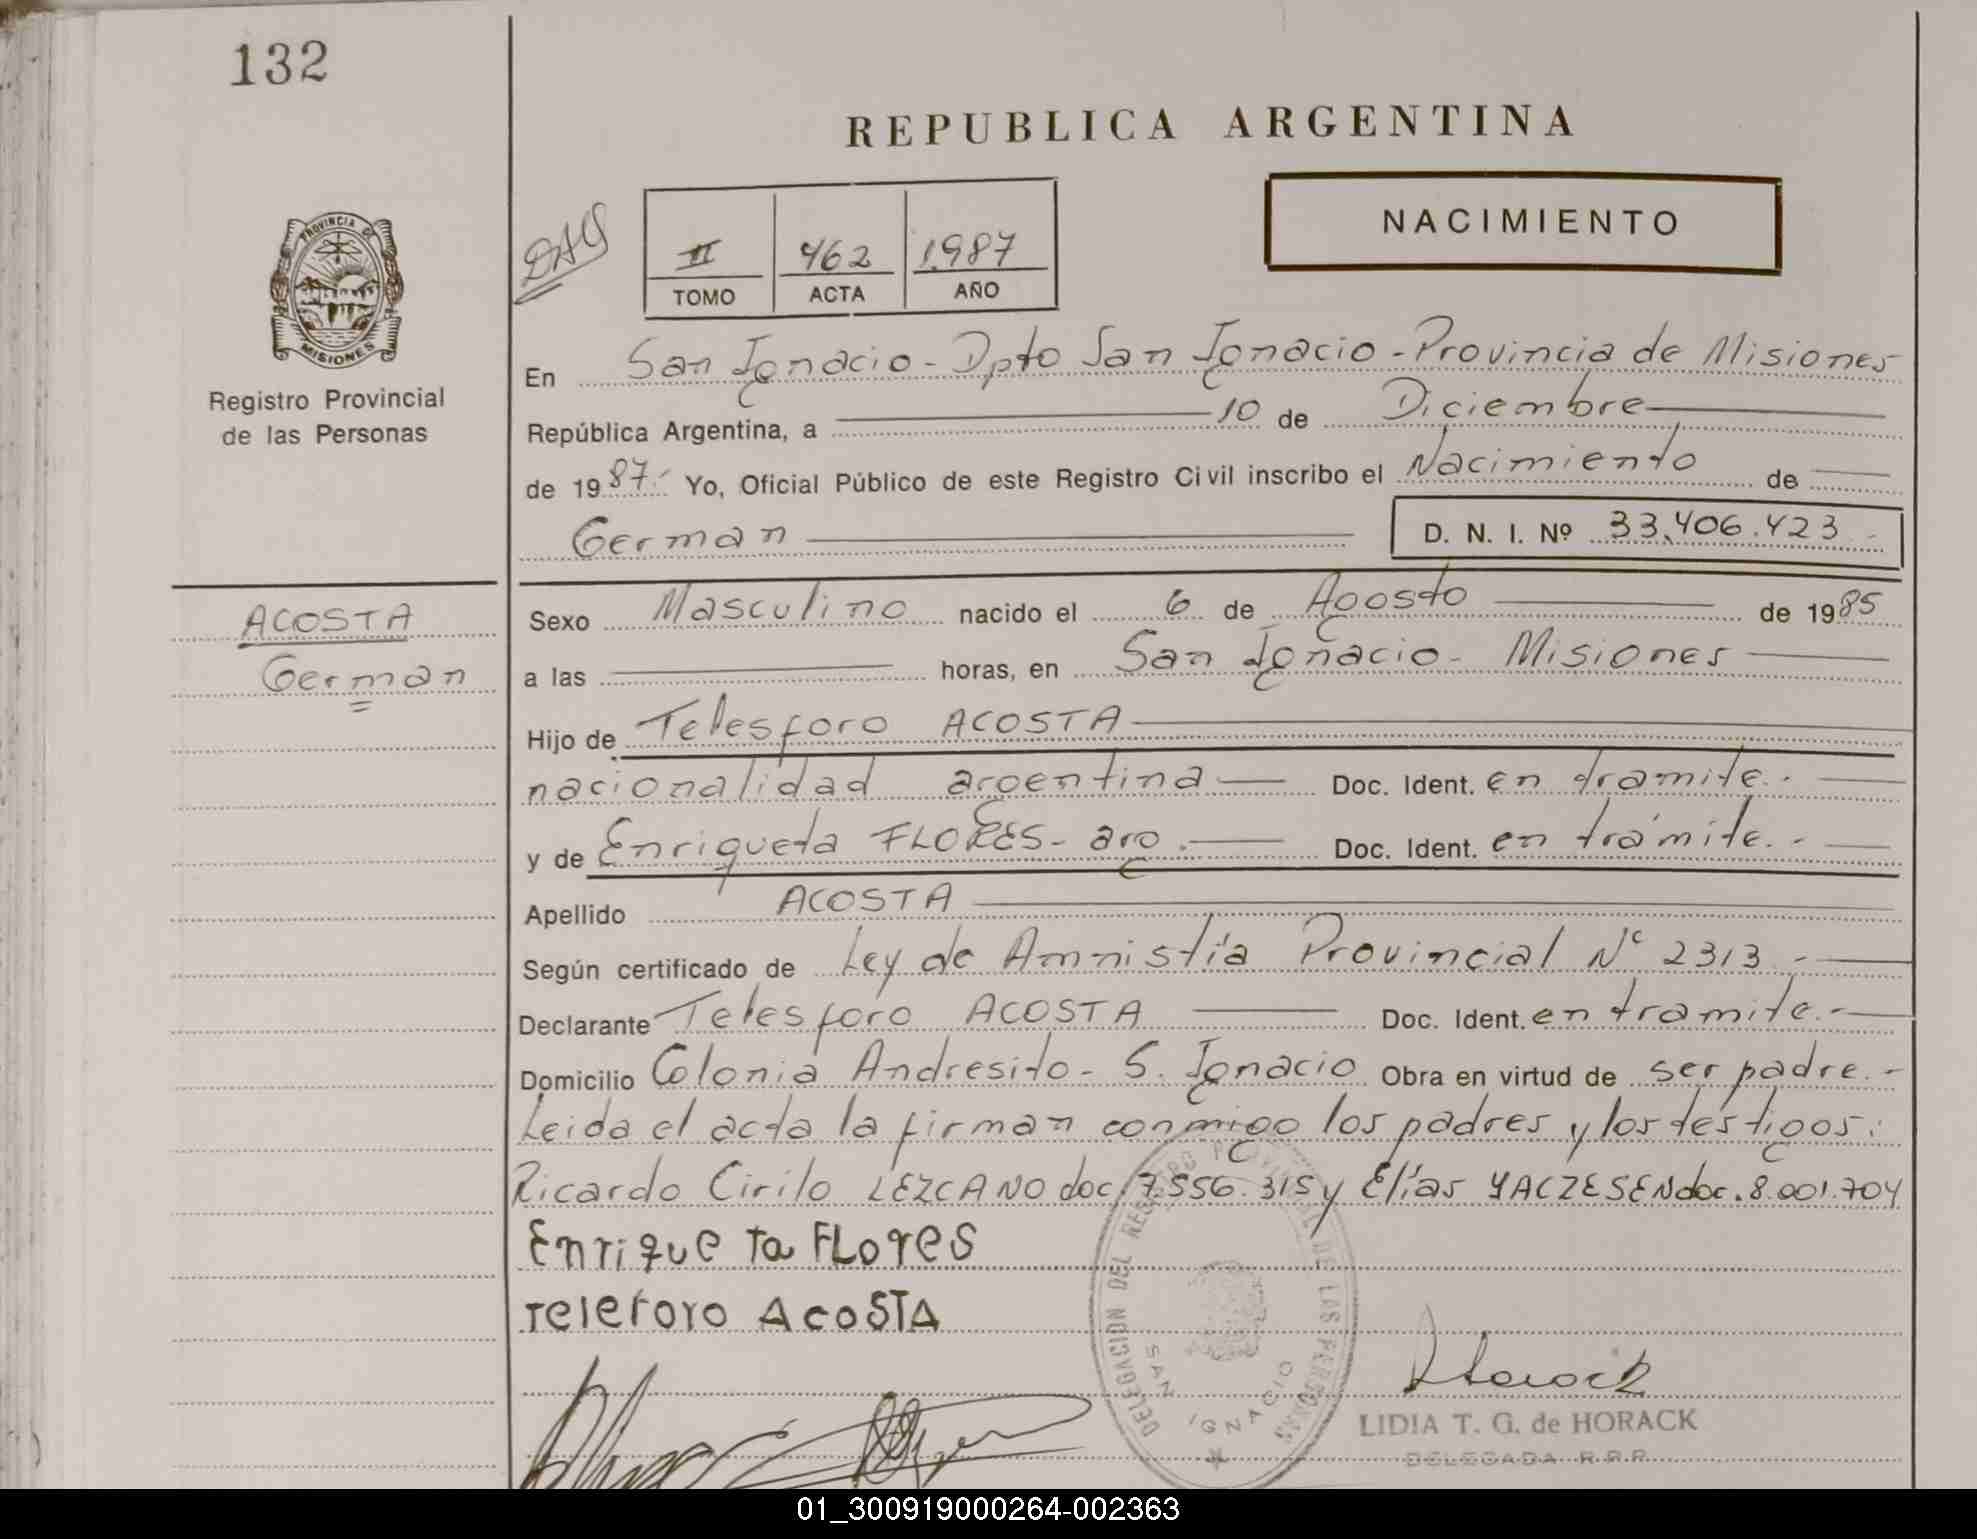 132
REPUBLICA ARGENTINA
NACIMIENTO
II 462 1.987
TOMO ACTA AÑO
PROVINCIA DE
MISIONES
Registro Provincial
de las Personas
En San Ignacio - Dpto San Ignacio - Provincia de Misiones
República Argentina, a 10 de Diciembre
de 1987.- Yo, Oficial Público de este Registro Civil inscribo el Nacimiento de
German D. N. I. Nº 33.406.423.-
ACOSTA
German
Sexo Masculino nacido el 6 de Agosto de 1985
a las horas, en San Ignacio - Misiones
Hijo de Telesforo ACOSTA
nacionalidad argentina Doc. Ident. en tramite.-
y de Enriqueta FLORES - arg. Doc. Ident. en trámite.-
Apellido ACOSTA
Según certificado de Ley de Amnistía Provincial Nº 2313.-
Declarante Telesforo ACOSTA Doc. Ident. en tramite.-
Domicilio Colonia Andresito - S. Ignacio Obra en virtud de ser padre.-
Leida el acta la firman conmigo los padres y los testigos:
Ricardo Cirilo LEZCANO doc. 7.556.315 y Elías YACZESEN doc. 8.001.704
Enrique ta FLores
Teleforo AcoSTA
DELEGACION DEL REGISTRO PROVINCIAL DE LAS PERSONAS
SAN IGNACIO
Horack
LIDIA T. G. de HORACK
DELEGADA R.P.P.
01_300919000264-002363